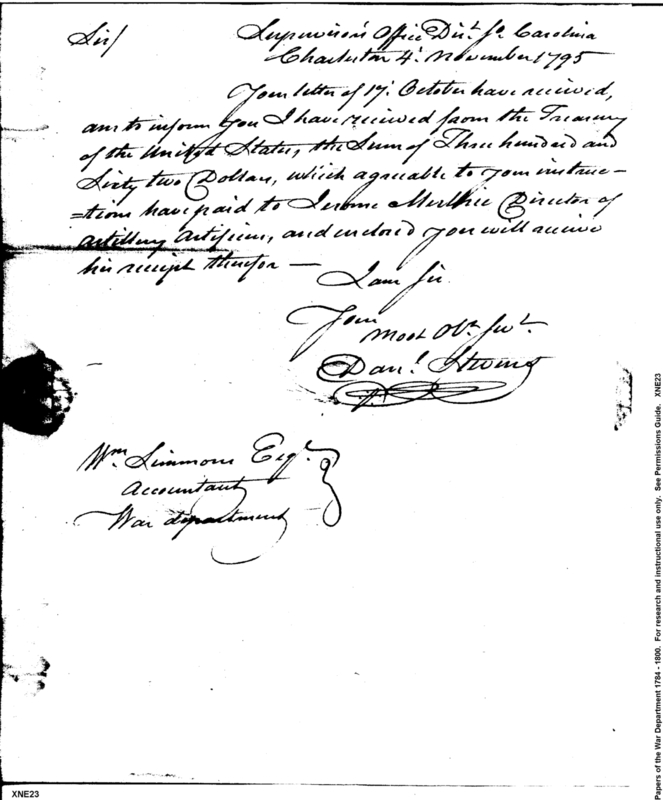 Sir/
Supervisor's Office Dist. So. Carolina
Charleston 4th. November 1795
Your letter of 17th. October have received,
am to inform you I have received from the Treasury
of the United States, the Sum of Three hundred and
Sixty two Dollars, which agreable to your instruc-
=tions have paid to Jerome Director of
artillery Artificers, and enclosed you will receive
his receipt therefor —
I am Sir
Your
most Obt. Servt.
Danl. Stevens
Wm. Simmons Esqr.
Accountant
War department
XNE23
Papers of the War Department 1784 - 1800. For research and instructional use only. See Permissions Guide. XNE23